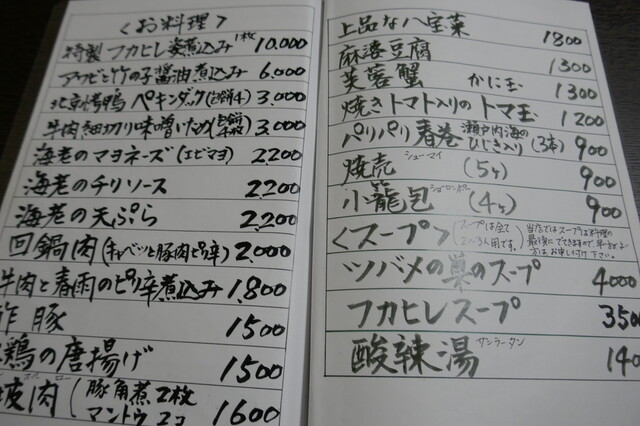 <お料理>
特製 フカヒレ姿煮込み 1枚 10.000
アワビと竹の子醤油煮込み 6.000
北京烤鴨 ペキンダック(包餅4) 3.000
牛肉細切り味噌いため 3.000
海老のマヨネーズ(エビマヨ) 2200
海老のチリソース 2.200
海老の天ぷら 2.200
回鍋肉(キャベツと豚肉ピリ辛) 2.000
牛肉と春雨のピリ辛煮込み 1.800
酢豚 1500
鶏の唐揚げ 1500
肉(豚角煮2枚 マントウ2コ 1600
上品な八宝菜 1800
麻婆豆腐 1300
芙蓉蟹 かに玉 1300
焼きトマト入りのトマ玉 1200
パリパリ春巻 瀬戸内海のひじき入り (3本) 900
焼売 シューマイ (5ヶ) 900
小籠包 ショーロンポー (4ヶ) 900
<スープ> (スープは全て2〜3人用です。) 当店ではスープは料理の
最後にできますので、早
方はお申し付け下さい。
ツバメの巣のスープ 4000
フカヒレスープ 350
酸辣湯 サンラータン 140